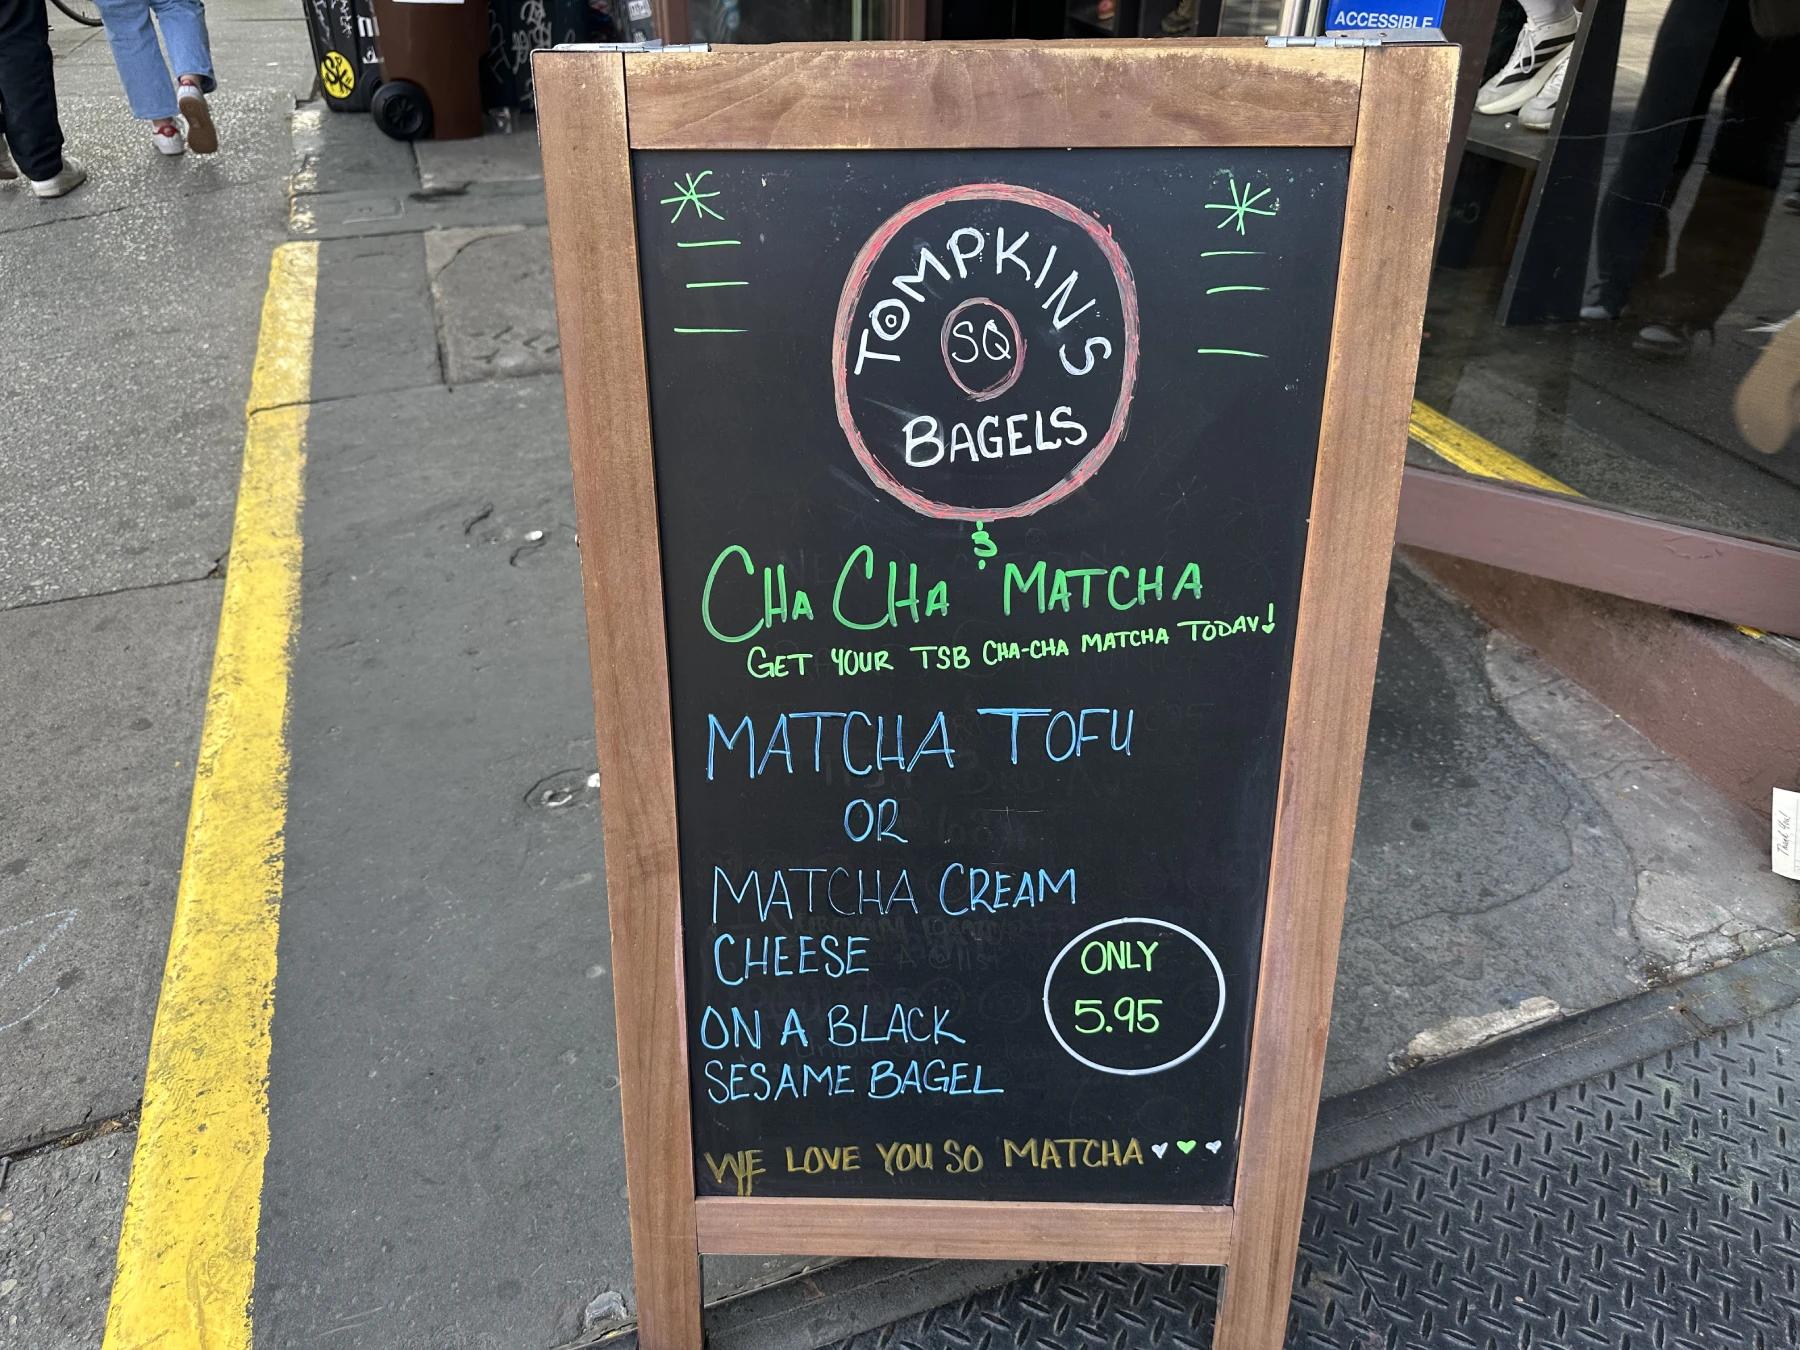 ACCESSIBLE
TOMPKINS
SQ
BAGELS
&
CHA CHA MATCHA
GET YOUR TSB CHA-CHA MATCHA TODAY!
MATCHA TOFU
OR
MATCHA CREAM
CHEESE
ON A BLACK
SESAME BAGEL
ONLY
5.95
WE LOVE YOU SO MATCHA
Thank You!